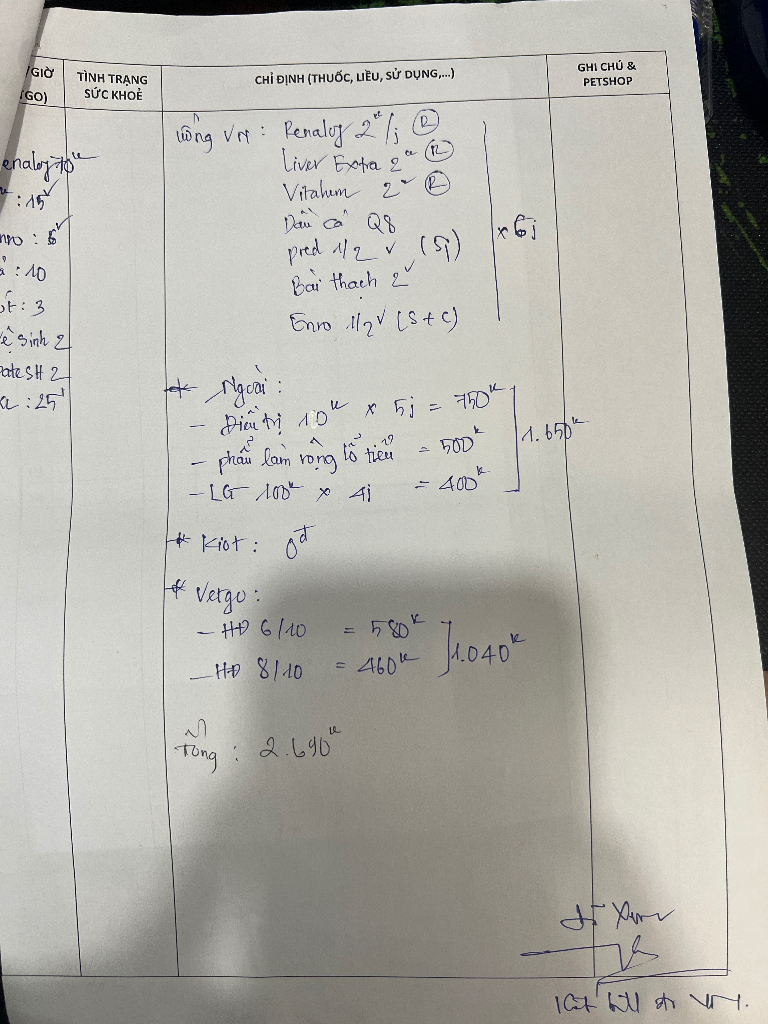 /GIỜ
/GO)
TÌNH TRẠNG
SỨC KHOẺ
CHỈ ĐỊNH (THUỐC, LIỀU, SỬ DỤNG,...)
GHI CHÚ &
PETSHOP
enalog 70k
: 15
nro : 6
: 10
: 3
ệ sinh 2
pate SH 2
: 25
Uống VN : Renalog 2 /j Ⓡ
Liver Extra 2 Ⓡ
Vitahem 2 Ⓡ
Dầu cá Q8
pred 1/2 v (Sj)
Bài thạch 2v
Enro 1/2 v (S + C)
x 6j
* Ngoài :
- Điều trị 10k x 5j = 750k
- phẩu làm rộng lổ tiểu = 500k
- LG 100k x 4j = 400k
1.650k
* Kiot : 0đ
* Vetgo :
- HĐ 6/10 = 580k
- HĐ 8/10 = 460k
1.040k
Tổng : 2.690k